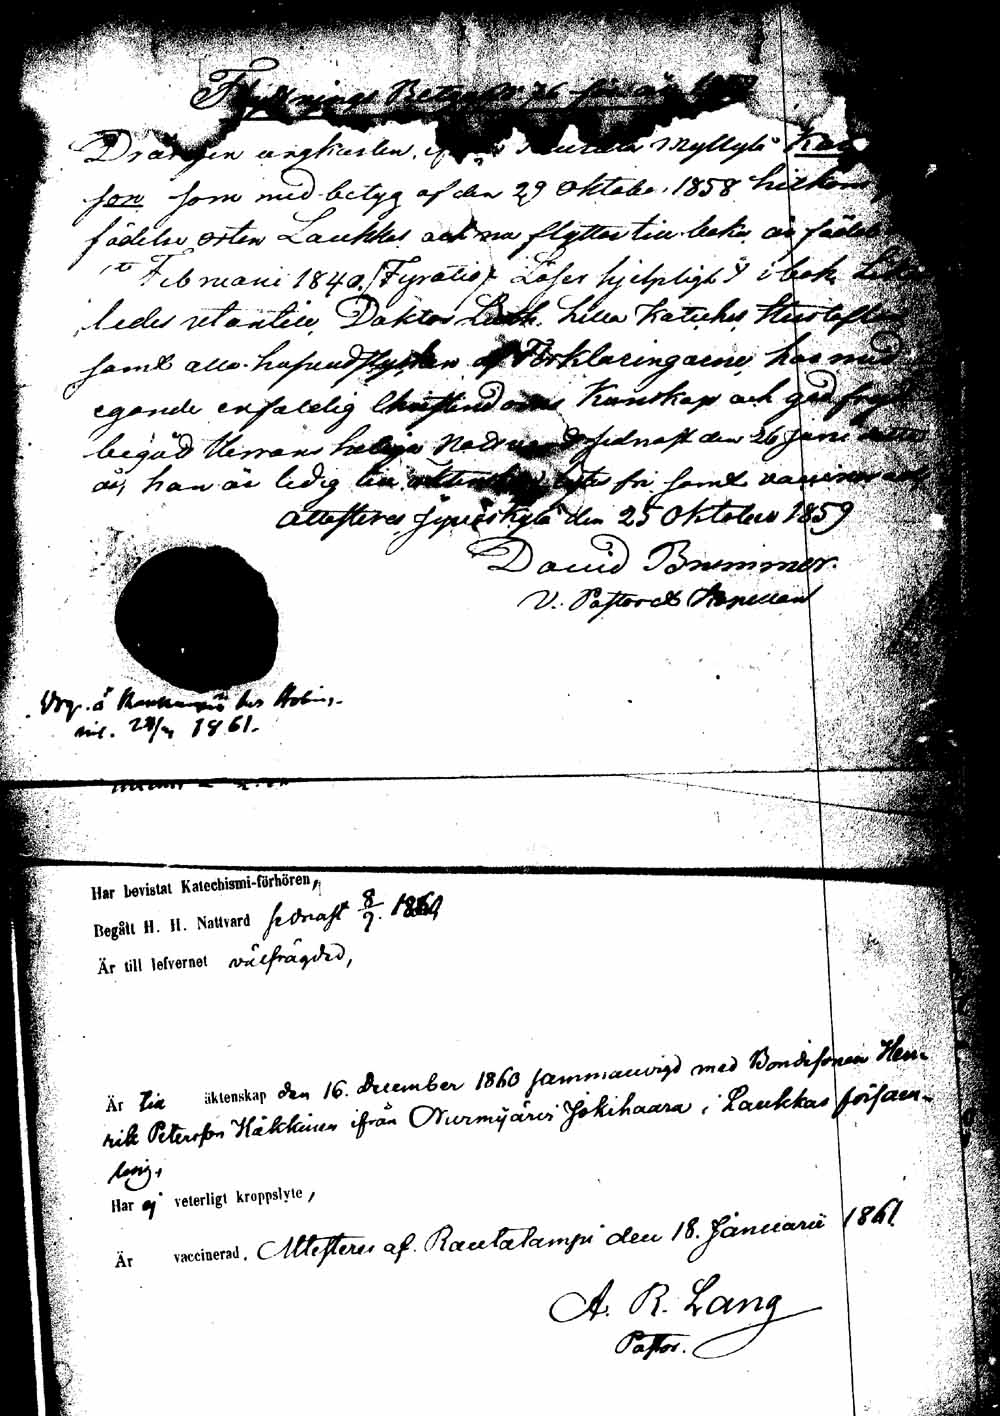 Flyttnings Betyg N. 76 för år 1859
Drängen ungkarlen, Myllylä
son som med betyg af den 29 Oktober 1858 hitkom
födelse orten Laukkas och nu flyttar till baka, är född
Februari 1840. (Fyratio). Läser hjelpligt i bok Lilla
ledes utantill, Doktor Luth. Lilla Kateches
samt alla hufvudstycken af Förklaringarne, har med
egande enfaldig Christendoms Kunskap och god frejd
begått Herrans heliga Nattvard sednast den 26 Juni
år, han är ledig till äktenskap lytes fri samt vaccinerad
Attesteras Jyväskylä den 25 Oktober 1859
David Brummer.
V. Pastor & Kapellan
1861.
Har bevistat Katechismi-förhören,
Begått H. H. Nattvard sednast 8/7. 1860,
Är till lefvernet välfrägdad,
Är till äktenskap den 16. December 1860 sammanvigd med Bondesonen Hen-
rik Petersson Häkkinen ifrån Nurmijärvi Jokihaara i Laukkas försam-
ling,
Har ej veterligt kroppslyte,
Är vaccinerad. Attesteras af. Rautalampi den 18. Januarii 1861
A. R. Lang
Pastor.